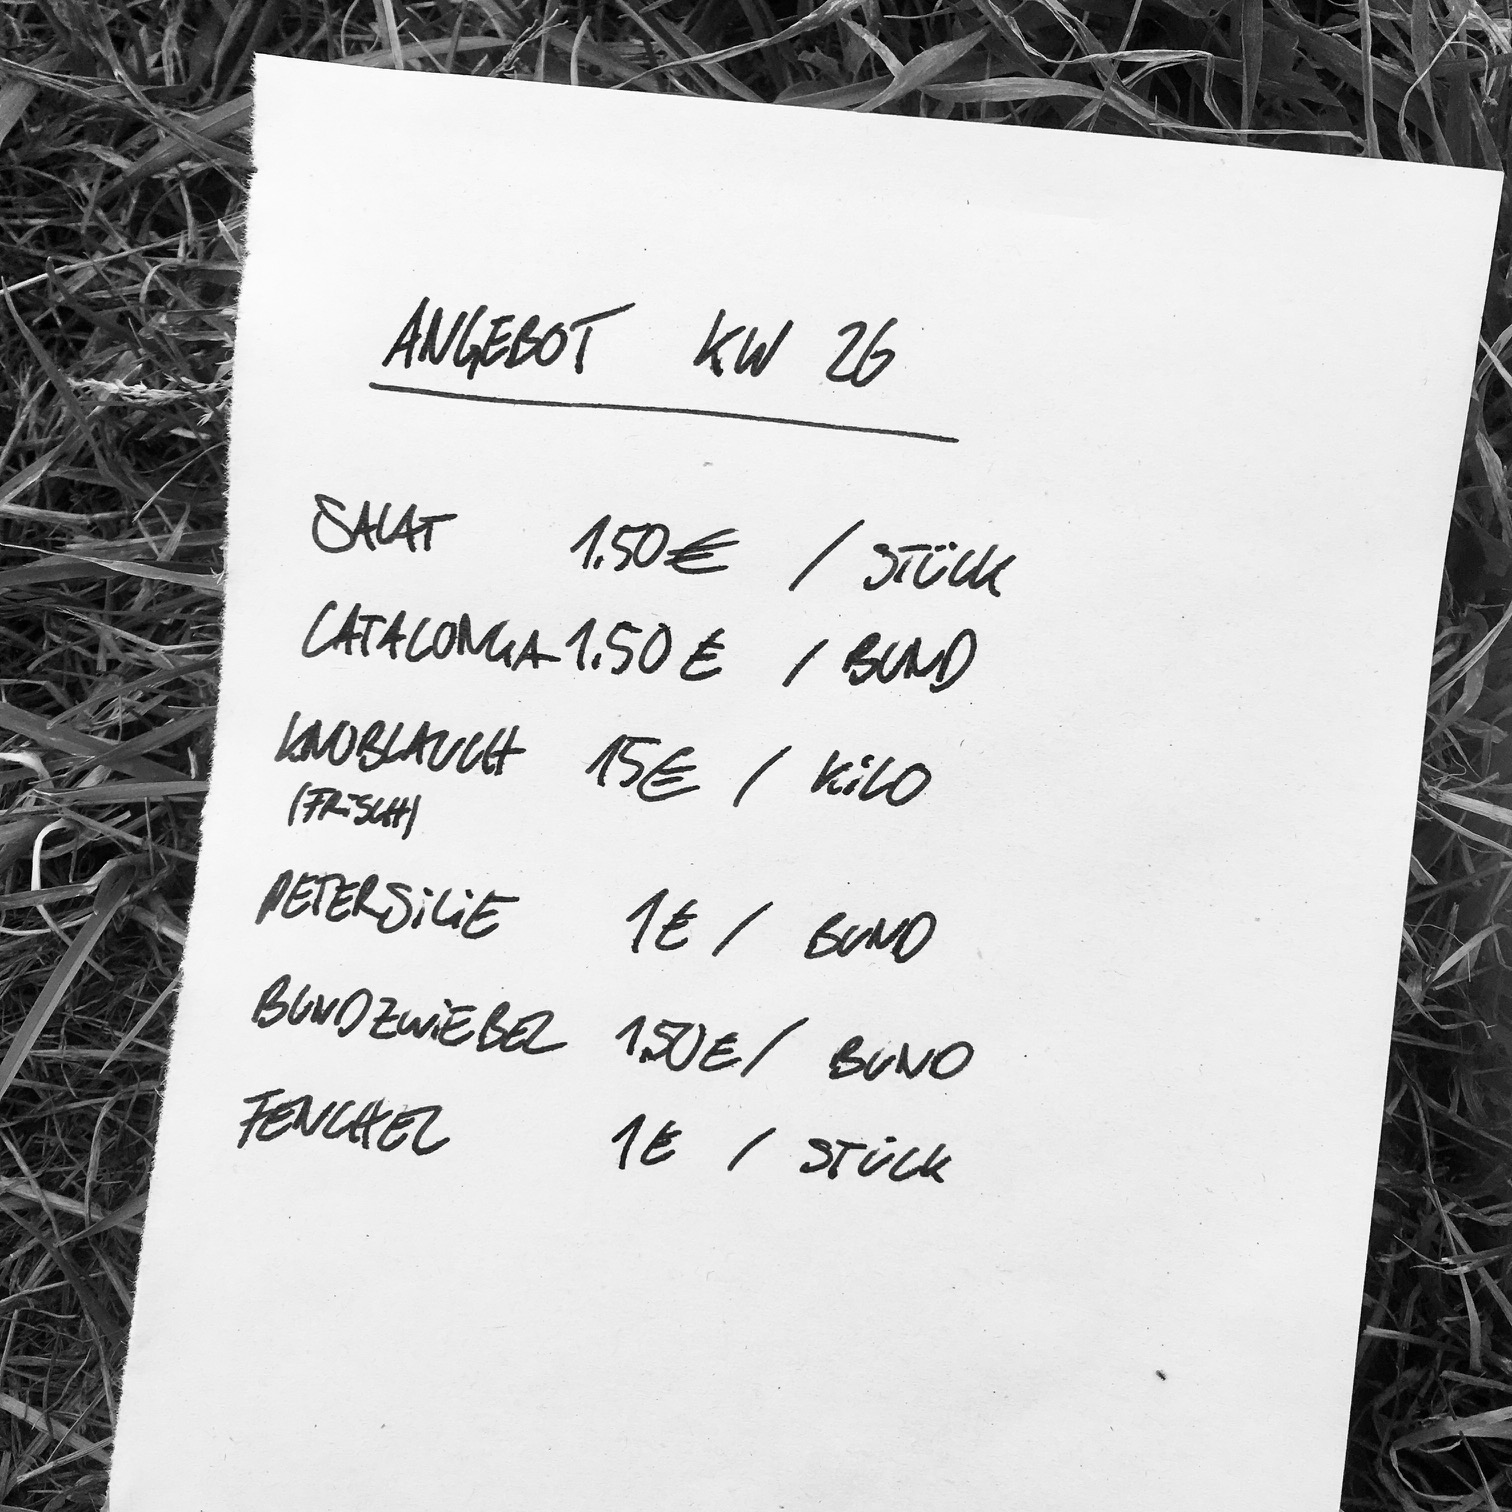 ANGEBOT KW 26
SALAT 1.50€ / STÜCK
CATALONGA 1.50€ / BUND
KNOBLAUCH 15€ / KiLO
(FRiSCH)
PETERSiLiE 1€ / BUND
BUNDZWiEBEL 1.50€ / BUND
FENCHEL 1€ / STÜCK